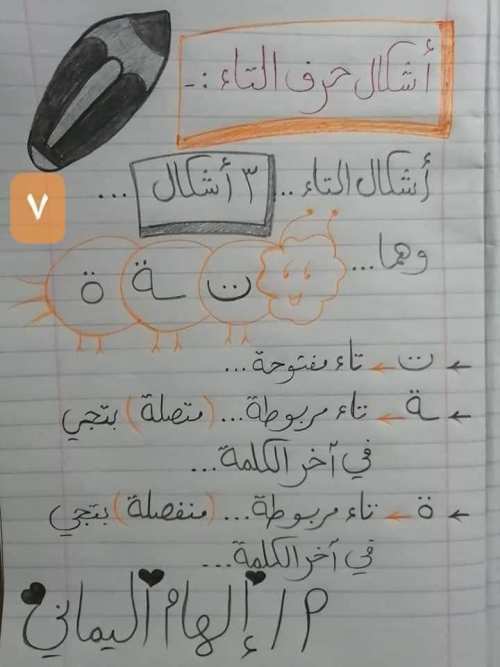 أشكال حرف التاء :-
أشكال التاء .. ٣ أشكال ...
٧
وهما ...
ت ـة ة
← ت ← تاء مفتوحة ...
← ـة ← تاء مربوطة ... (متصلة) بتجي
في آخر الكلمة ...
← ة ← تاء مربوطة ... (منفصلة) بتجي
في آخر الكلمة ...
م / إلهام اليماني